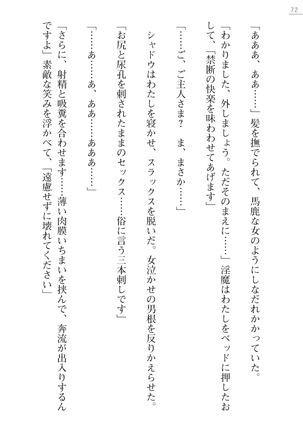 72
「あああ、ああ……」髪を撫でられて、馬鹿な女のようにしなだれかかっていた。
「わかりました、外しましょう。ただそのまえに……」淫魔はわたしをベッドに押したお
して、「禁断の快楽を味わわせてあげます」
「……ご、ご主人さま？　ま、まさか……」
シャドウはわたしを寝かせ、スラックスを脱いだ。女泣かせの男根を反りかえらせた。
「お尻と尿孔を刺されたままのセックス……俗に言う三本刺しです」
「……あ……あ、ああ……あああ……」
「さらに、射精と吸糞を合わせます……薄い肉膜いちまいを挟んで、奔流が出入りするん
ですよ」素敵な笑みを浮かべて、「遠慮せずに壊れてください」